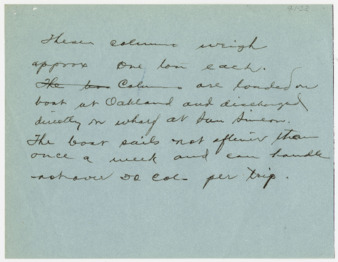 These columns weigh
approx one ton each.
The box Columns are loaded on
boat at Oakland and discharged
directly on wharf at San Simeon.
The boat sails not oftener than
once a week and can handle
not over 20 cols. per trip.